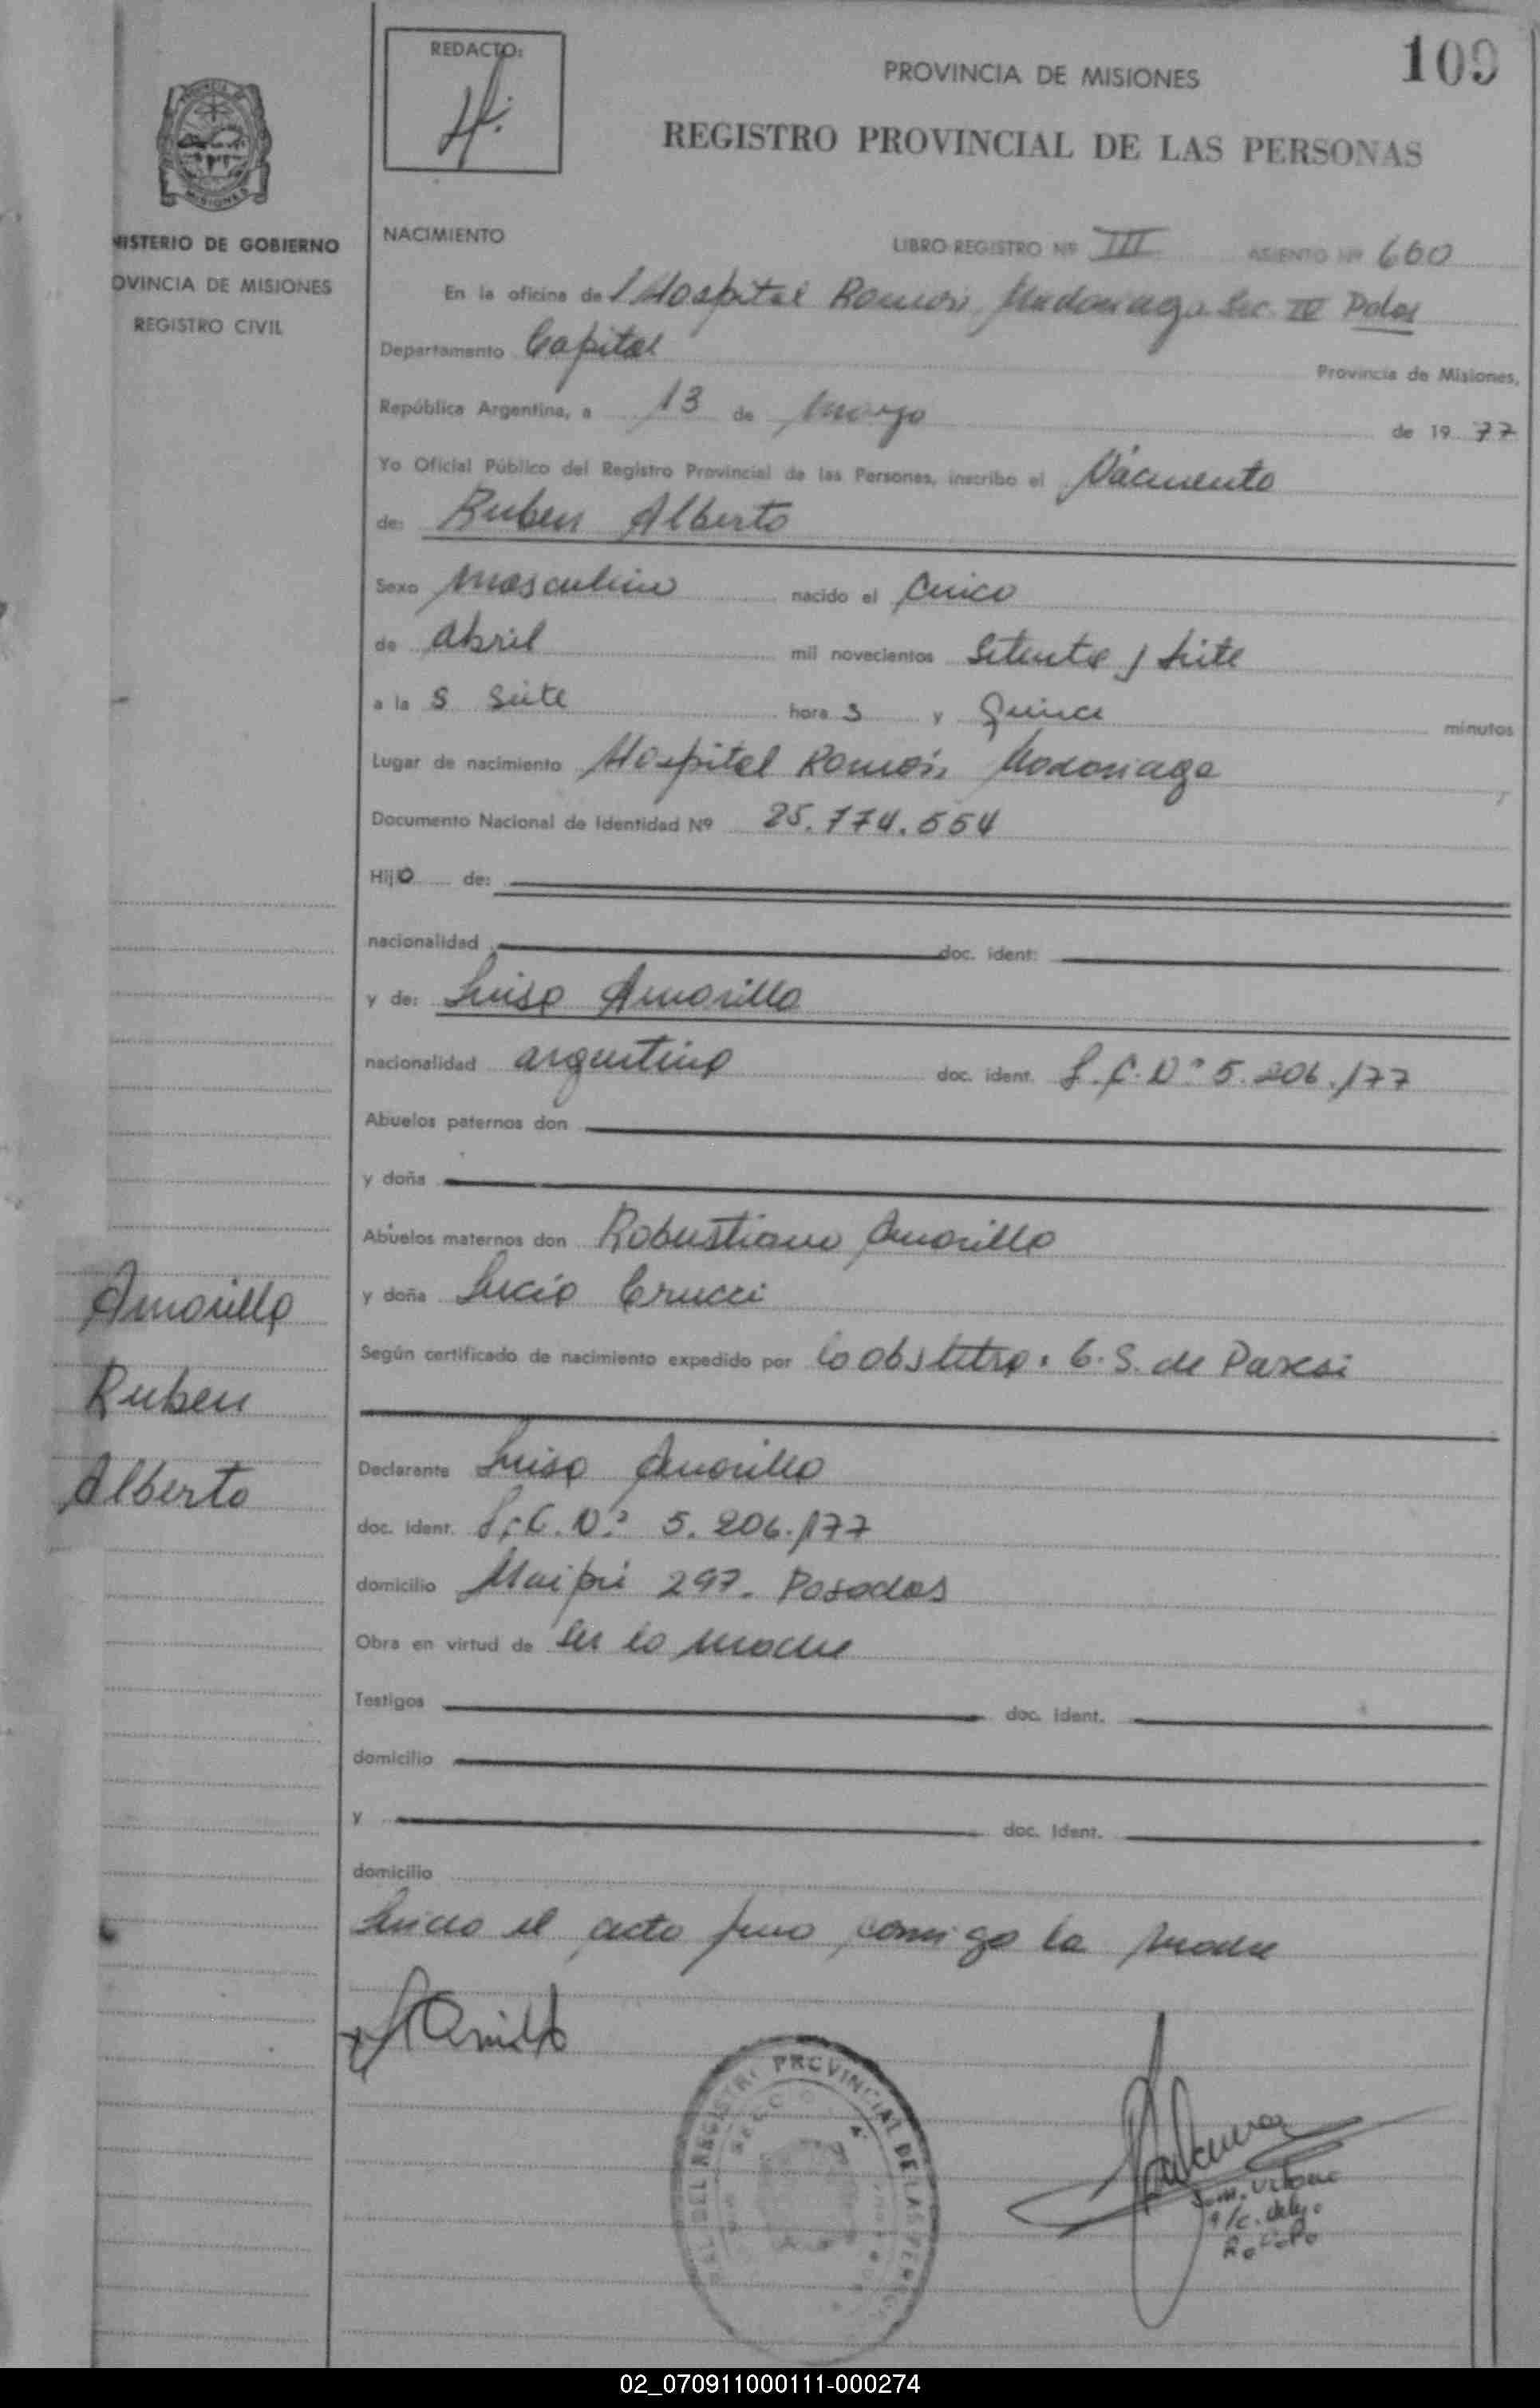 109
REDACTO:
PROVINCIA DE MISIONES
REGISTRO PROVINCIAL DE LAS PERSONAS
MISIONES
NISTERIO DE GOBIERNO
OVINCIA DE MISIONES
REGISTRO CIVIL
NACIMIENTO
LIBRO REGISTRO Nº III ASIENTO Nº 660
En la oficina del Hospital Ramón Madariaga Sec. IV Pdas
Departamento Capital
Provincia de Misiones,
República Argentina, a 13 de Marzo de 1977
Yo Oficial Público del Registro Provincial de las Personas, inscribo el Nacimento
de: Ruben Alberto
Sexo Masculino nacido el Cinco
de abril mil novecientos Setenta y Siete
a la s Siete hora s y Quince minutos
Lugar de nacimiento Hospital Ramón Madariaga
Documento Nacional de Identidad Nº 25.774.554
Hijo de:
nacionalidad doc. ident:
y de: Luisa Amarilla
nacionalidad argentina doc. ident. L.C.Nº 5.206.177
Abuelos paternos don
y doña
Abuelos maternos don Robustiano Amarilla
y doña Lucia
Según certificado de nacimiento expedido por la obstetra. G.S. de
Declarante Luisa Amarilla
doc. ident. L.C.Nº 5.206.177
domicilio Maipú 297. Posadas
Obra en virtud de Ser la madre
Testigos doc. ident.
domicilio
y doc. ident.
domicilio
el acto conmigo la Madre
Amarilla
Ruben
Alberto
REGISTRO PROVINCIAL DE LAS
02_070911000111-000274